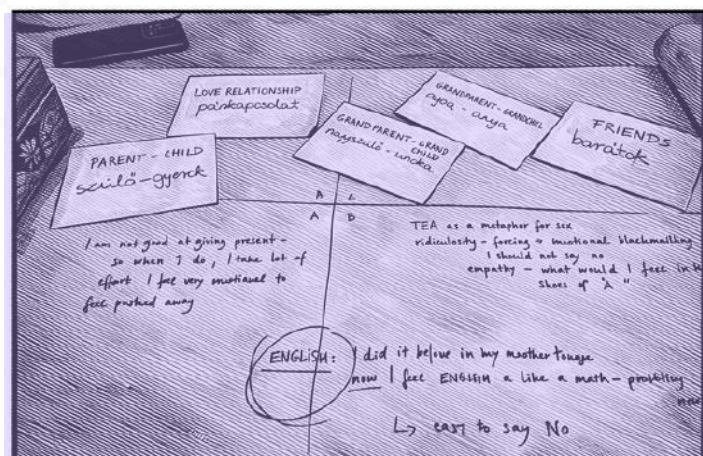 LOVE RELATIONSHIP
párkapcsolat
PARENT - CHILD
szülő-gyerek
GRANDPARENT - GRAND
CHILD
nagyszülő-unoka
GRANDPARENT-GRANDCHIL
anya
FRIENDS
barátok
A
A D
I am not good at giving present -
so when I do, I take lot of
effort I feel very emotional to
feel pushed away
TEA as a metaphor for sex
ridiculosity - forcing emotional blackmailing
I should not say no
empathy - what would I feel in
shoes of "A"
ENGLISH: I did it before in my mother
now I feel ENGLISH a like a math-
now
↳ easy to say No